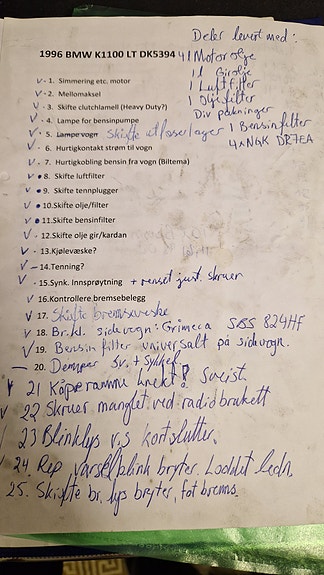 Deler levert med:
1996 BMW K1100 LT DK5394
4 l Motorolje
1 l Girolje
1 Luftfilter
1 Oljefilter
Div pakninger
1 Bensinfilter
4x NGK DR7EA
✓ - 1. Simmering etc. motor
✓ - 2. Mellomaksel
✓ - 3. Skifte clutchlamell (Heavy Duty?)
✓ - 4. Lampe for bensinpumpe
✓ - 5. Lampe vogn Skifte utløserlager
✓ - 6. Hurtigkontakt strøm til vogn
✓ - 7. Hurtigkobling bensin fra vogn (Biltema)
✓ • 8. Skifte luftfilter
✓ • 9. Skifte tennplugger
✓ • 10. Skifte olje/filter
✓ • 11. Skifte bensinfilter
✓ - 12. Skifte olje gir/kardan
✓ - 13. Kjølevæske?
✓ - 14. Tenning?
✓ - 15. Synk. Innsprøytning + renset just. skruer
✓ 16. Kontrollere bremsebelegg
✓ 17. Skifte bremsevæske
✓ 18. Br.kl. sidevogn: Grimeca SBS 824HF
✓ 19. Bensinfilter universalt på sidevogn.
— 20. Demper sv. +
✓ 21 Kåperamme knekt! Sveist.
✓ 22 Skruer manglet ved radiobrakett
✓ 23 Blinklys v.s kortslutter.
✓ 24. Rep varsel/blink bryter. Loddet ledn.
25. Skifte br. lys bryter, fot brems.